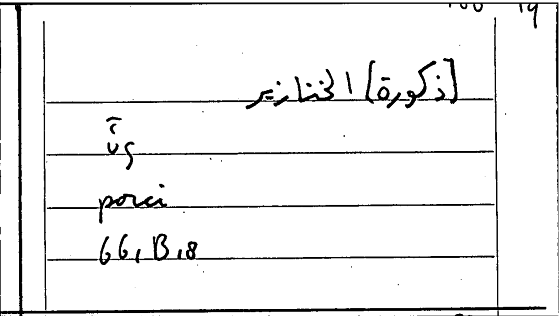 [ذكورة] الخنازير
ὗς
porci
66, B, 8